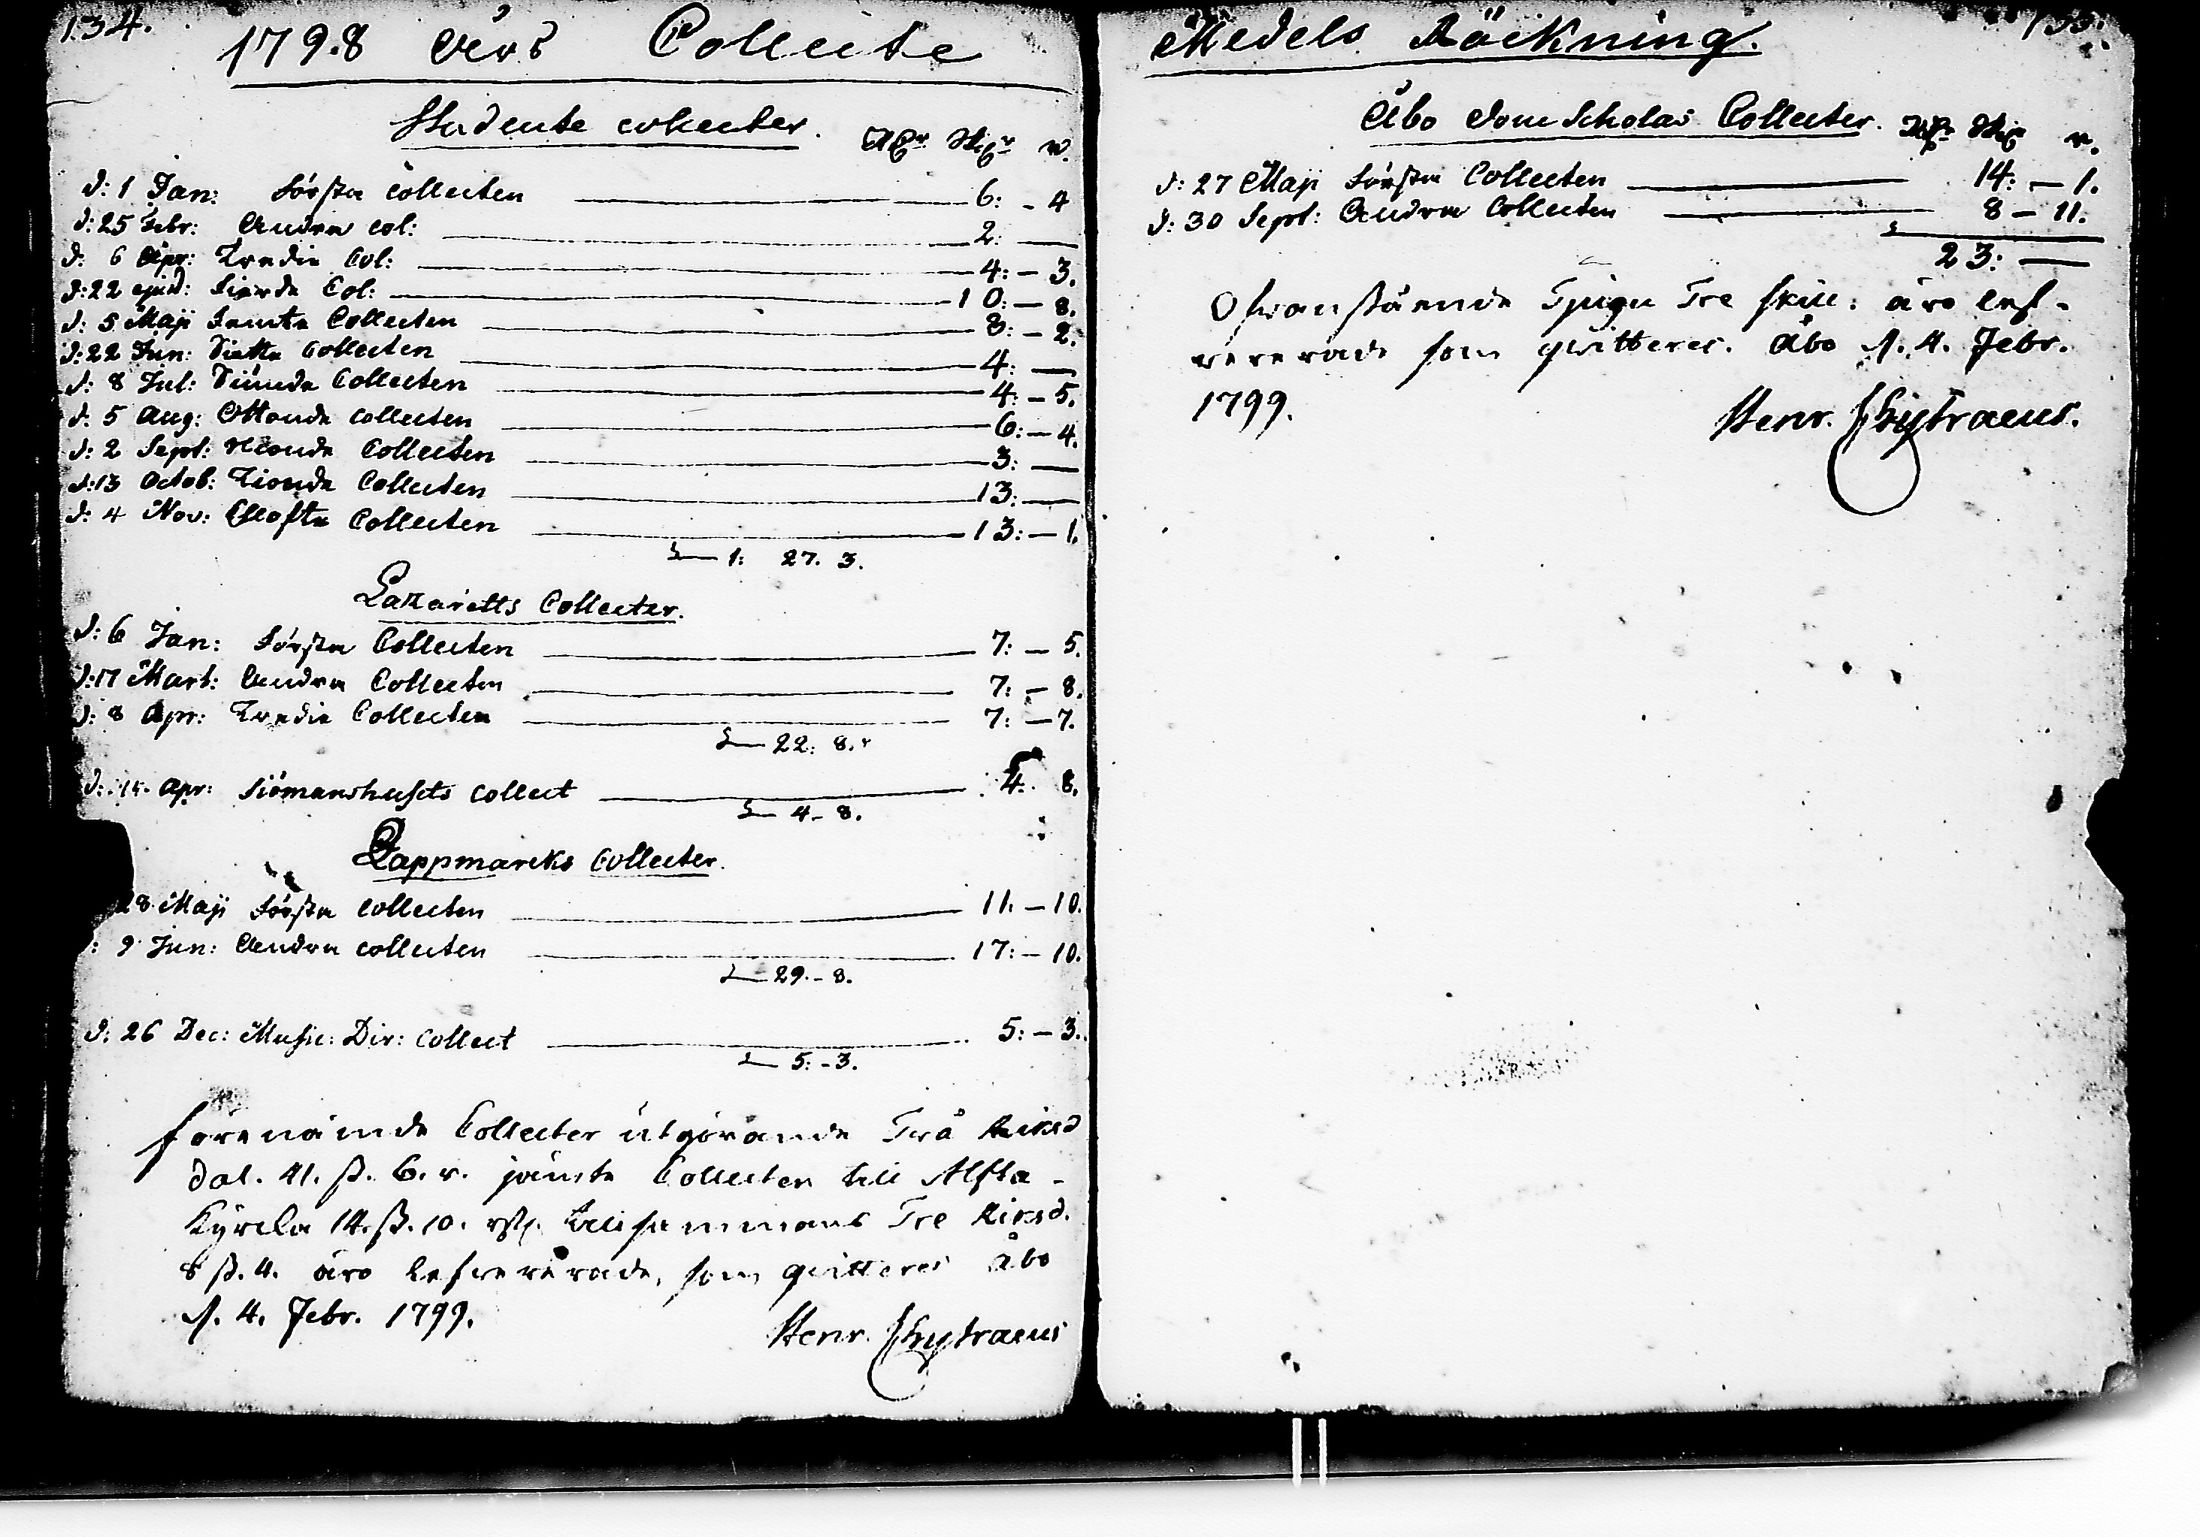 134.
1798 Års Collecte
Studente collecter. Rdr. Skr. r.
d: 1 Jan: Första Collecten 6: - 4
d: 25 Febr: Andra Col: 2: —
d: 6 Apr: Tredie Col: 4: - 3.
d: 22 ejusd: Fierde Col: 10: - 8.
d: 5 Maji Femte Collecten 8: - 2.
d: 22 Jun: Siette Collecten 4: —
d: 8 Jul: Siunde Collecten 4: - 5.
d. 5 Aug: Ottonde Collecten 6: - 4.
d: 2 Sept: Nionde Collecten 3: —
d: 13 Octob: Tionde Collecten 13: —
d: 4 Nov: Ellofte Collecten 13: - 1.
S— 1: 27. 3.
Lazaretts Collecter.
d: 6 Jan: Första Collecten 7: - 5.
d: 17 Mart: Andra Collecten 7: - 8.
d: 8 Apr: Tredie Collecten 7: - 7.
S— 22: 8.
d: 15 Apr: Siömanshusets Collect 4: 8.
S— 4- 8.
Lappmarcks Collecter.
28 Maji Första Collecten 11. - 10.
: 9 Jun: Andra Collecten 17: - 10.
S— 29. - 8.
d: 26 Dec: Music: Dir: Collect 5: - 3.
S— 5: - 3.
Förenämde Collecter utgörande Två Riksd
dal. 41. ß. 6. r. jämte Collecten till Alfta-
Kyrcka 14. ß. 10. rst. tillsammans Tre Riksd.
8 ß. 4. äro lefvererade, som qvitteres Åbo
d. 4. Febr. 1799.
Henr. Chytraeus
Medels Räckning.
Åbo Dom Scholas Collecter. Rdr Sk r.
d: 27 Maji Första Collecten 14: - 1.
d: 30 Sept: Andra Collecten 8 - 11.
S 23: —
Ofvanstående Tjugu Tre skill: äro lef-
vererade som qvitteres. Åbo d. 4. Febr.
1799.
Henr. Chytraeus.